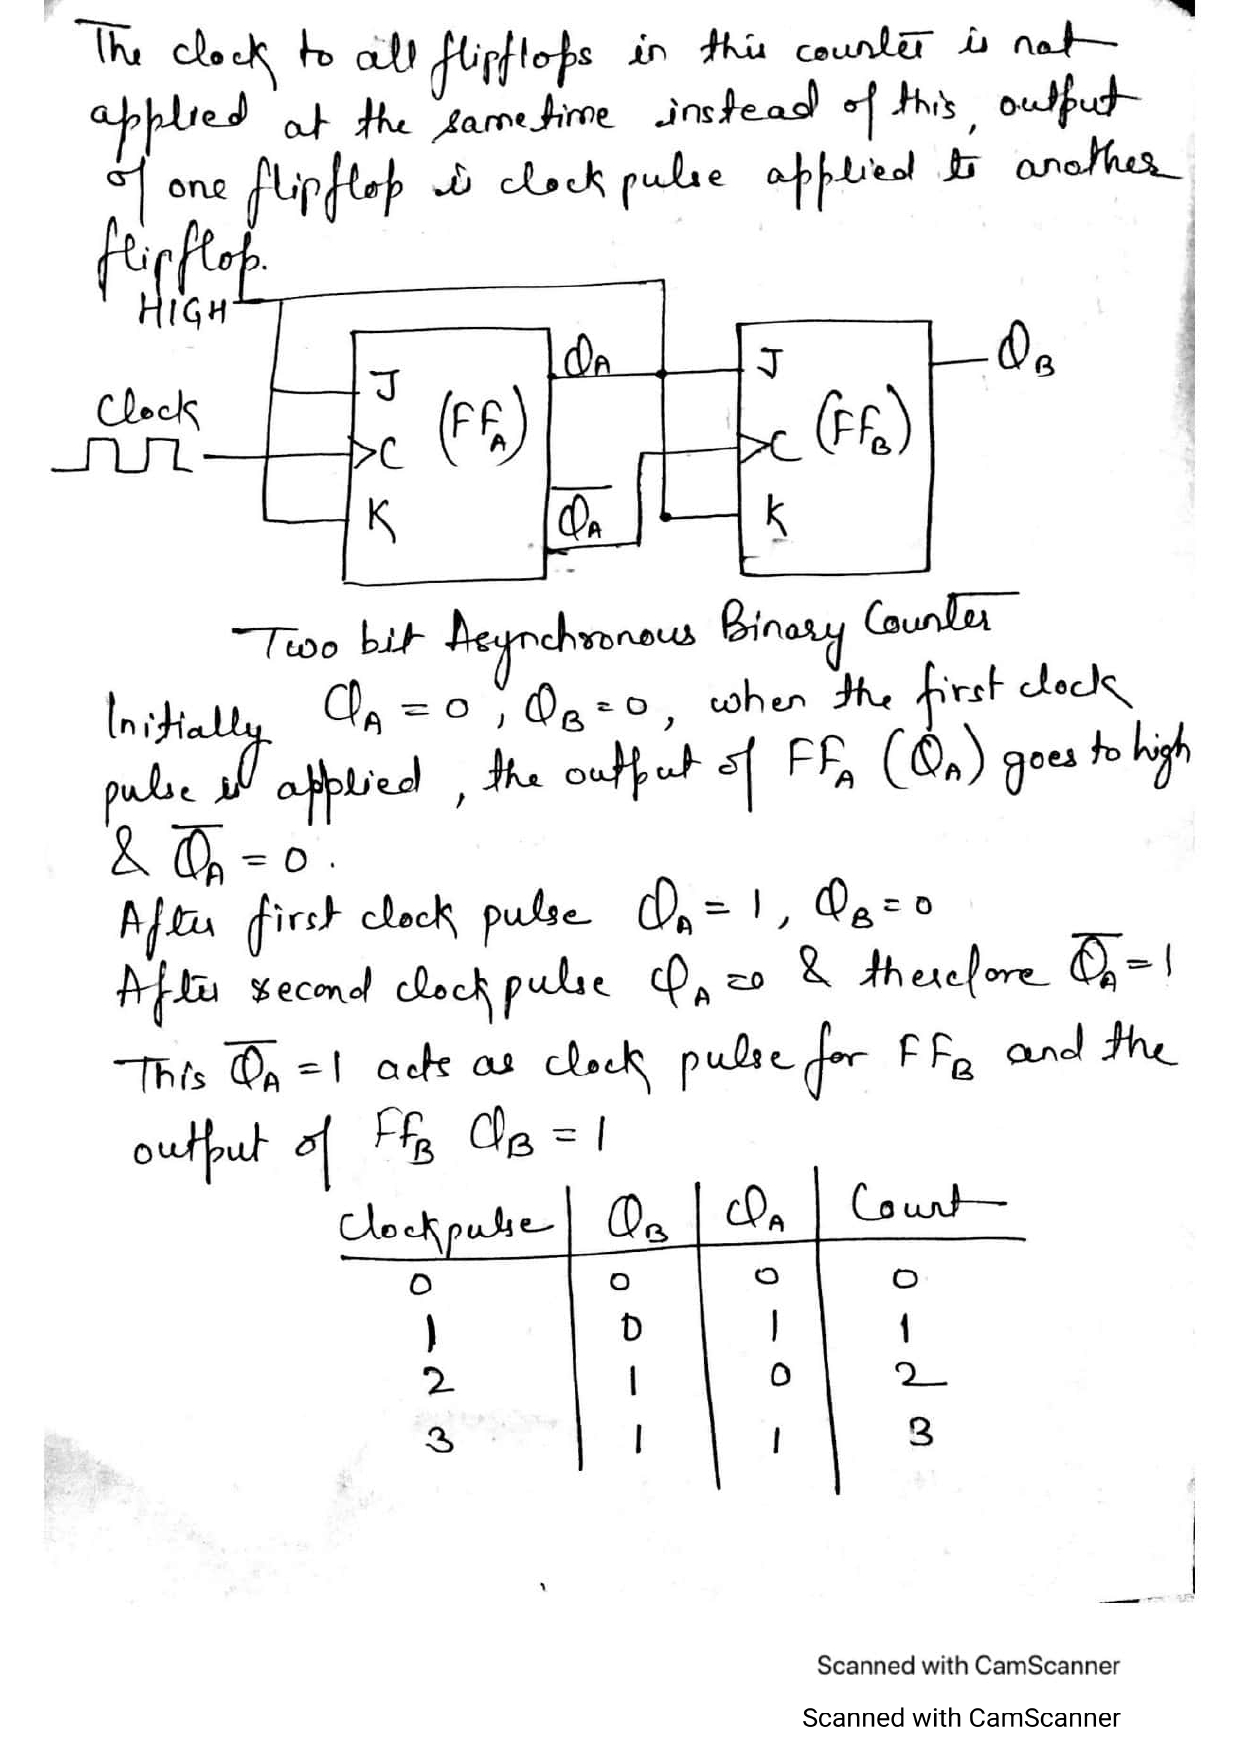 The clock to all flipflops in this counter is not
applied at the same time instead of this, output
of one flipflop is clock pulse applied to another
flipflop.
HIGH
Clock
J
C
K
(FFA)
QA
Q̅A
J
C
K
(FFB)
QB
Two bit Asynchronous Binary Counter
Initially QA = 0, QB = 0, when the first clock
pulse is applied, the output of FFA (QA) goes to high
& Q̅A = 0.
After first clock pulse QA = 1, QB = 0
After second clock pulse QA = 0 & therefore Q̅A = 1
This Q̅A = 1 acts as clock pulse for FFB and the
output of FFB QB = 1
Clock pulse QB QA Count
0 0 0 0
1 0 1 1
2 1 0 2
3 1 1 3
Scanned with CamScanner
Scanned with CamScanner